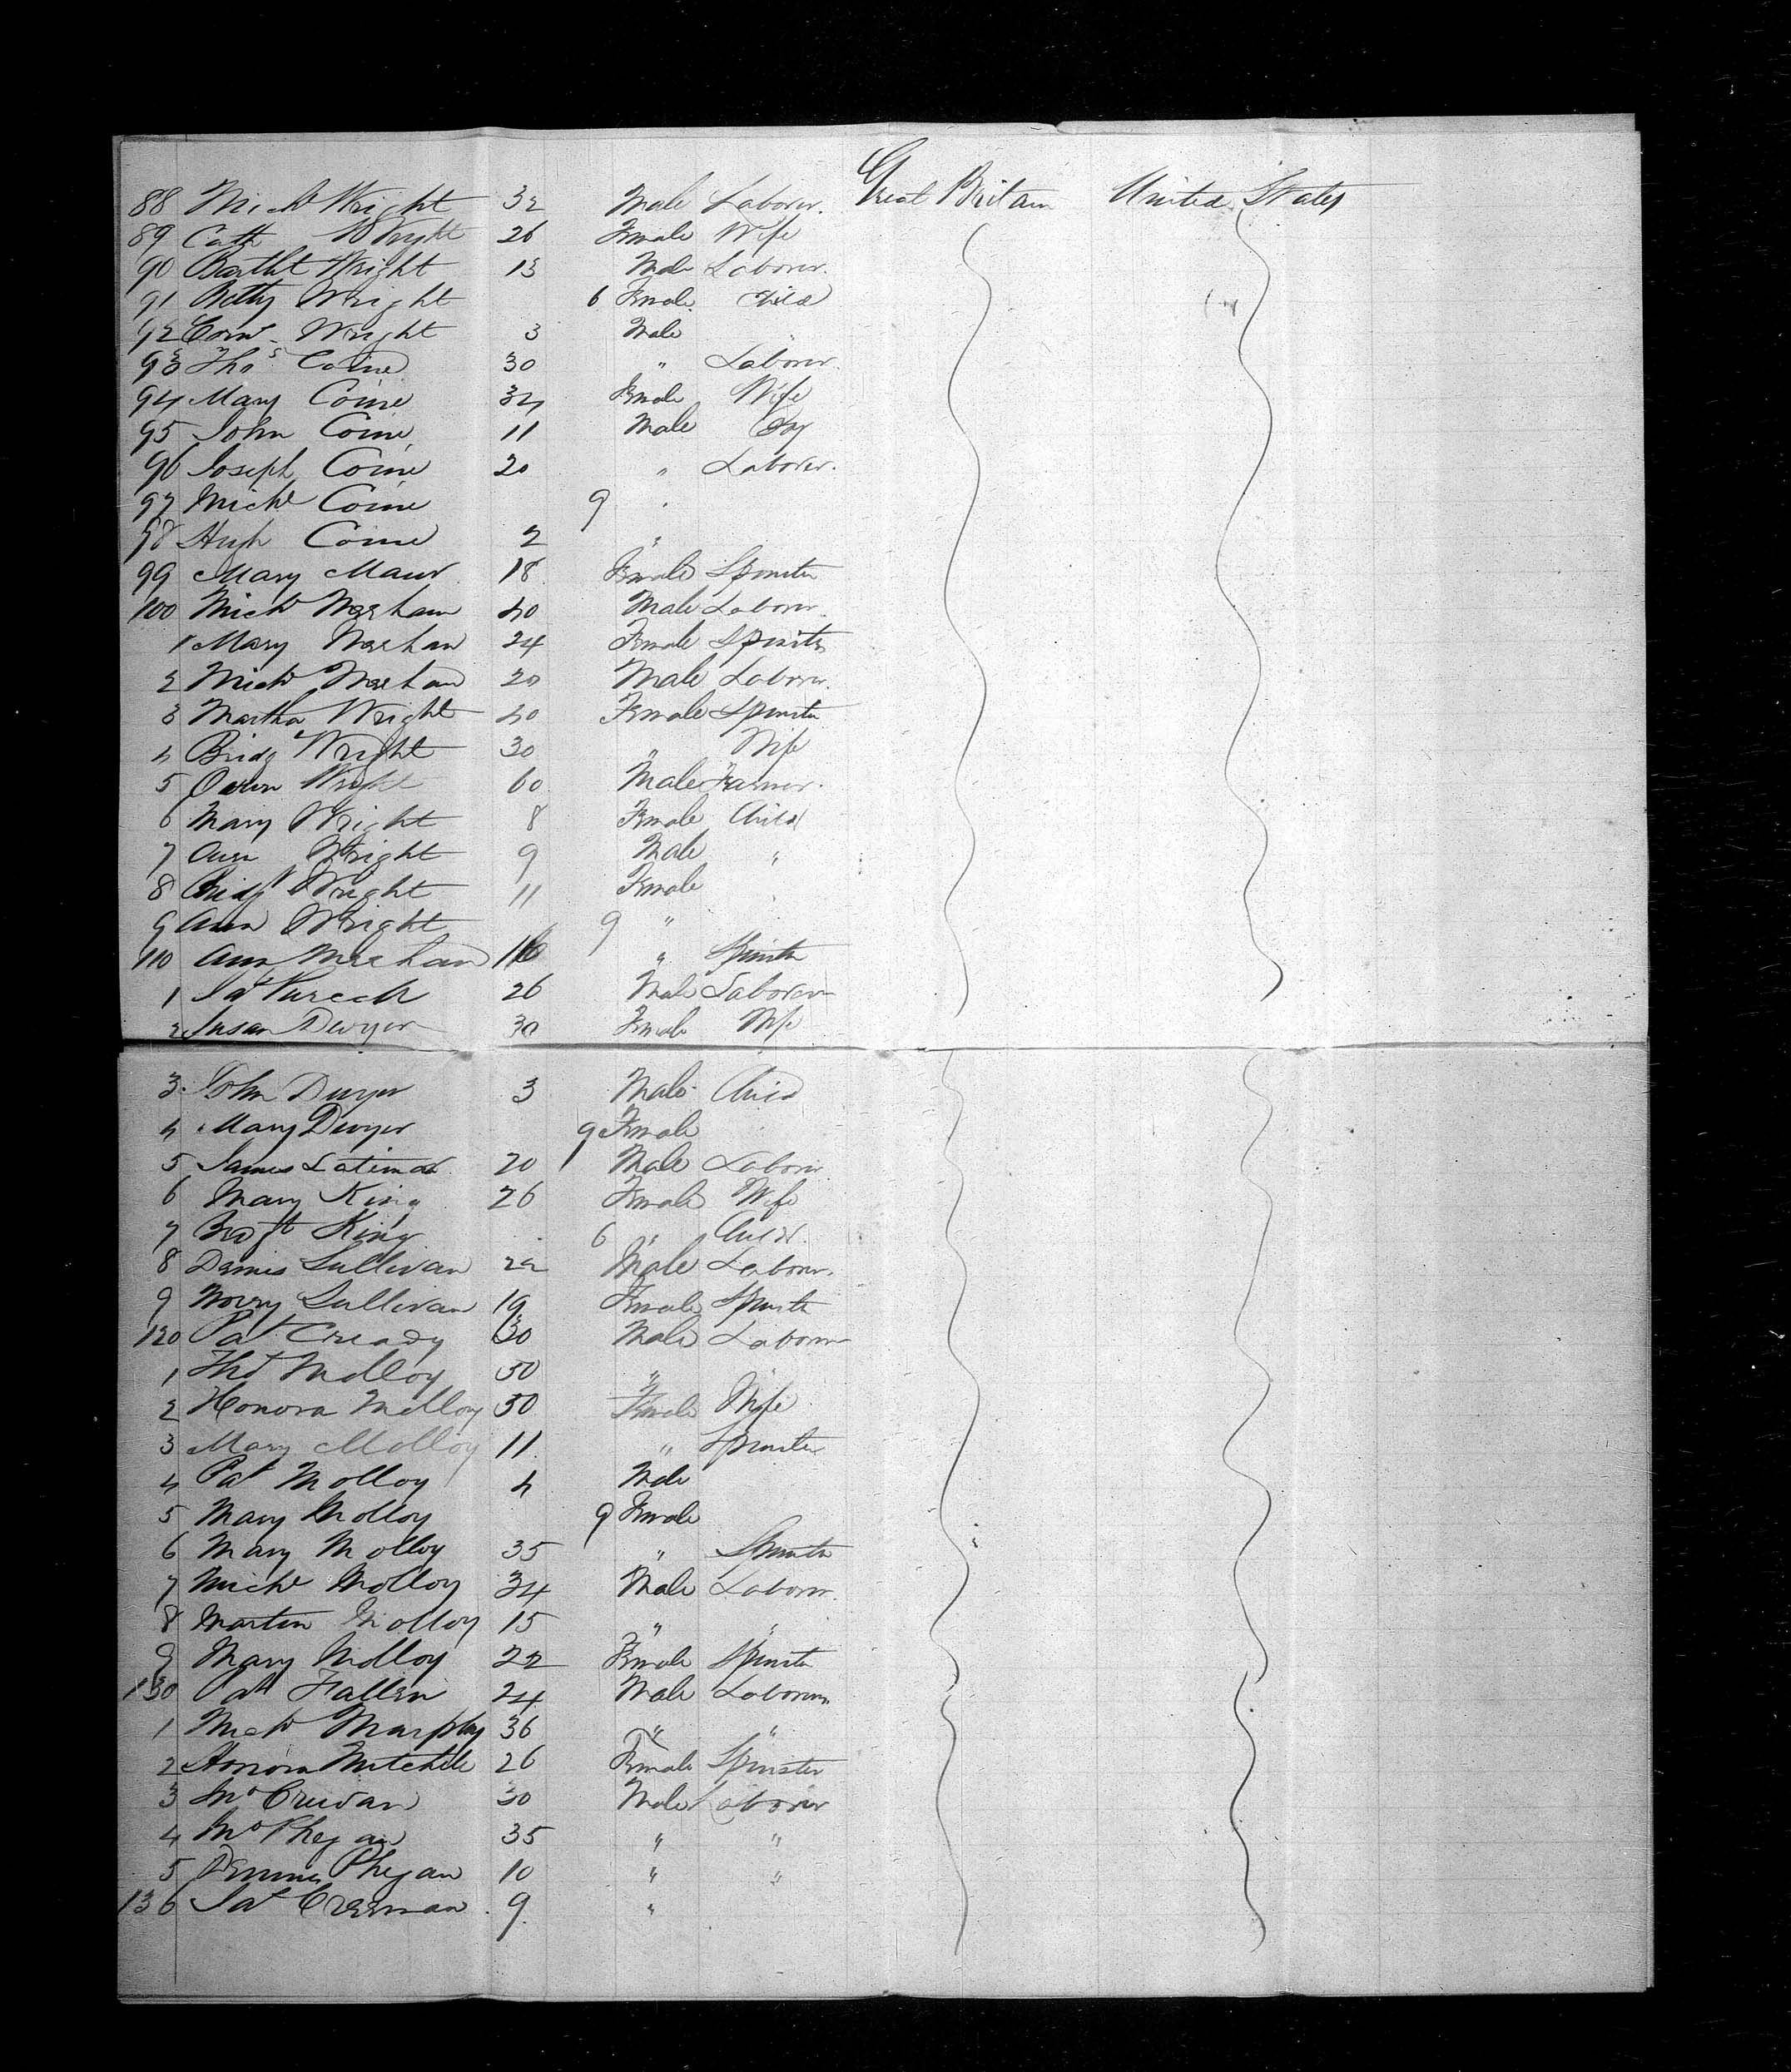 88 Mich Wright 32 Male Laborer. Great Britain United States
89 Cath Wright 26 Female Wife
90 Bartht Wright 13 Male Laborer.
91 Betty Wright 6 Female Child
92 Corn. Wright 3 Male
93 Thos Coine 30 " Laborer.
94 Mary Coine 34 Female Wife
95 John Coine 11 Male Boy
96 Joseph Coine 20 " Laborer.
97 Michl Coine 9
98 Hugh Coine 2 "
99 Mary 18 Female Spinster
100 Michl Meehan 40 Male Laborer.
1 Mary Meehan 24 Female Spinster
2 Michl Meehan 20 Male Laborer.
3 Martha Wright 40 Female Spinster
4 Bridgt Wright 30 " Wife
5 Owen Wright 60 Male Farmer.
6 Mary Wright 8 Female Child
7 Ann Wright 9 Male "
8 Bridgt Wright 11 Female
9 Ann Wright 9 "
110 Ann Meehan 16 " Spinster
1 26 Male Laborer
2 Susan Dwyer 30 Female Wife
3. John Dwyer 3 Male Child
4 Mary Dwyer 9 Female
5 James Latimer 20 Male Laborer
6 Mary King 26 Female Wife
7 King 6 " Child.
8 Dennis Sullivan 22 Male Laborer.
9 Sullivan 19 Female Spinster
120 Pat Cready 30 Male Laborer
1 Thos Molloy 50 "
2 Honora Molloy 50 Female Wife
3 Mary Molloy 11. " Spinster
4 Pat Molloy 4 Male
5 Mary Molloy 9 Female
6 Mary Molloy 35 " Spinster
7 Michl Molloy 34 Male Laborer.
8 Martin Molloy 15 " "
9 Mary Molloy 22 Female Spinster
130 Pat Fallen 24 Male Laborer
1 Michl Murphy 36 " "
2 Honora Mitchell 26 Female Spinster
3 Jno 30 Male Laborer
4 Jno Phegan 35 " "
5 Dennis Phegan 10 " "
136 Pat 9. "